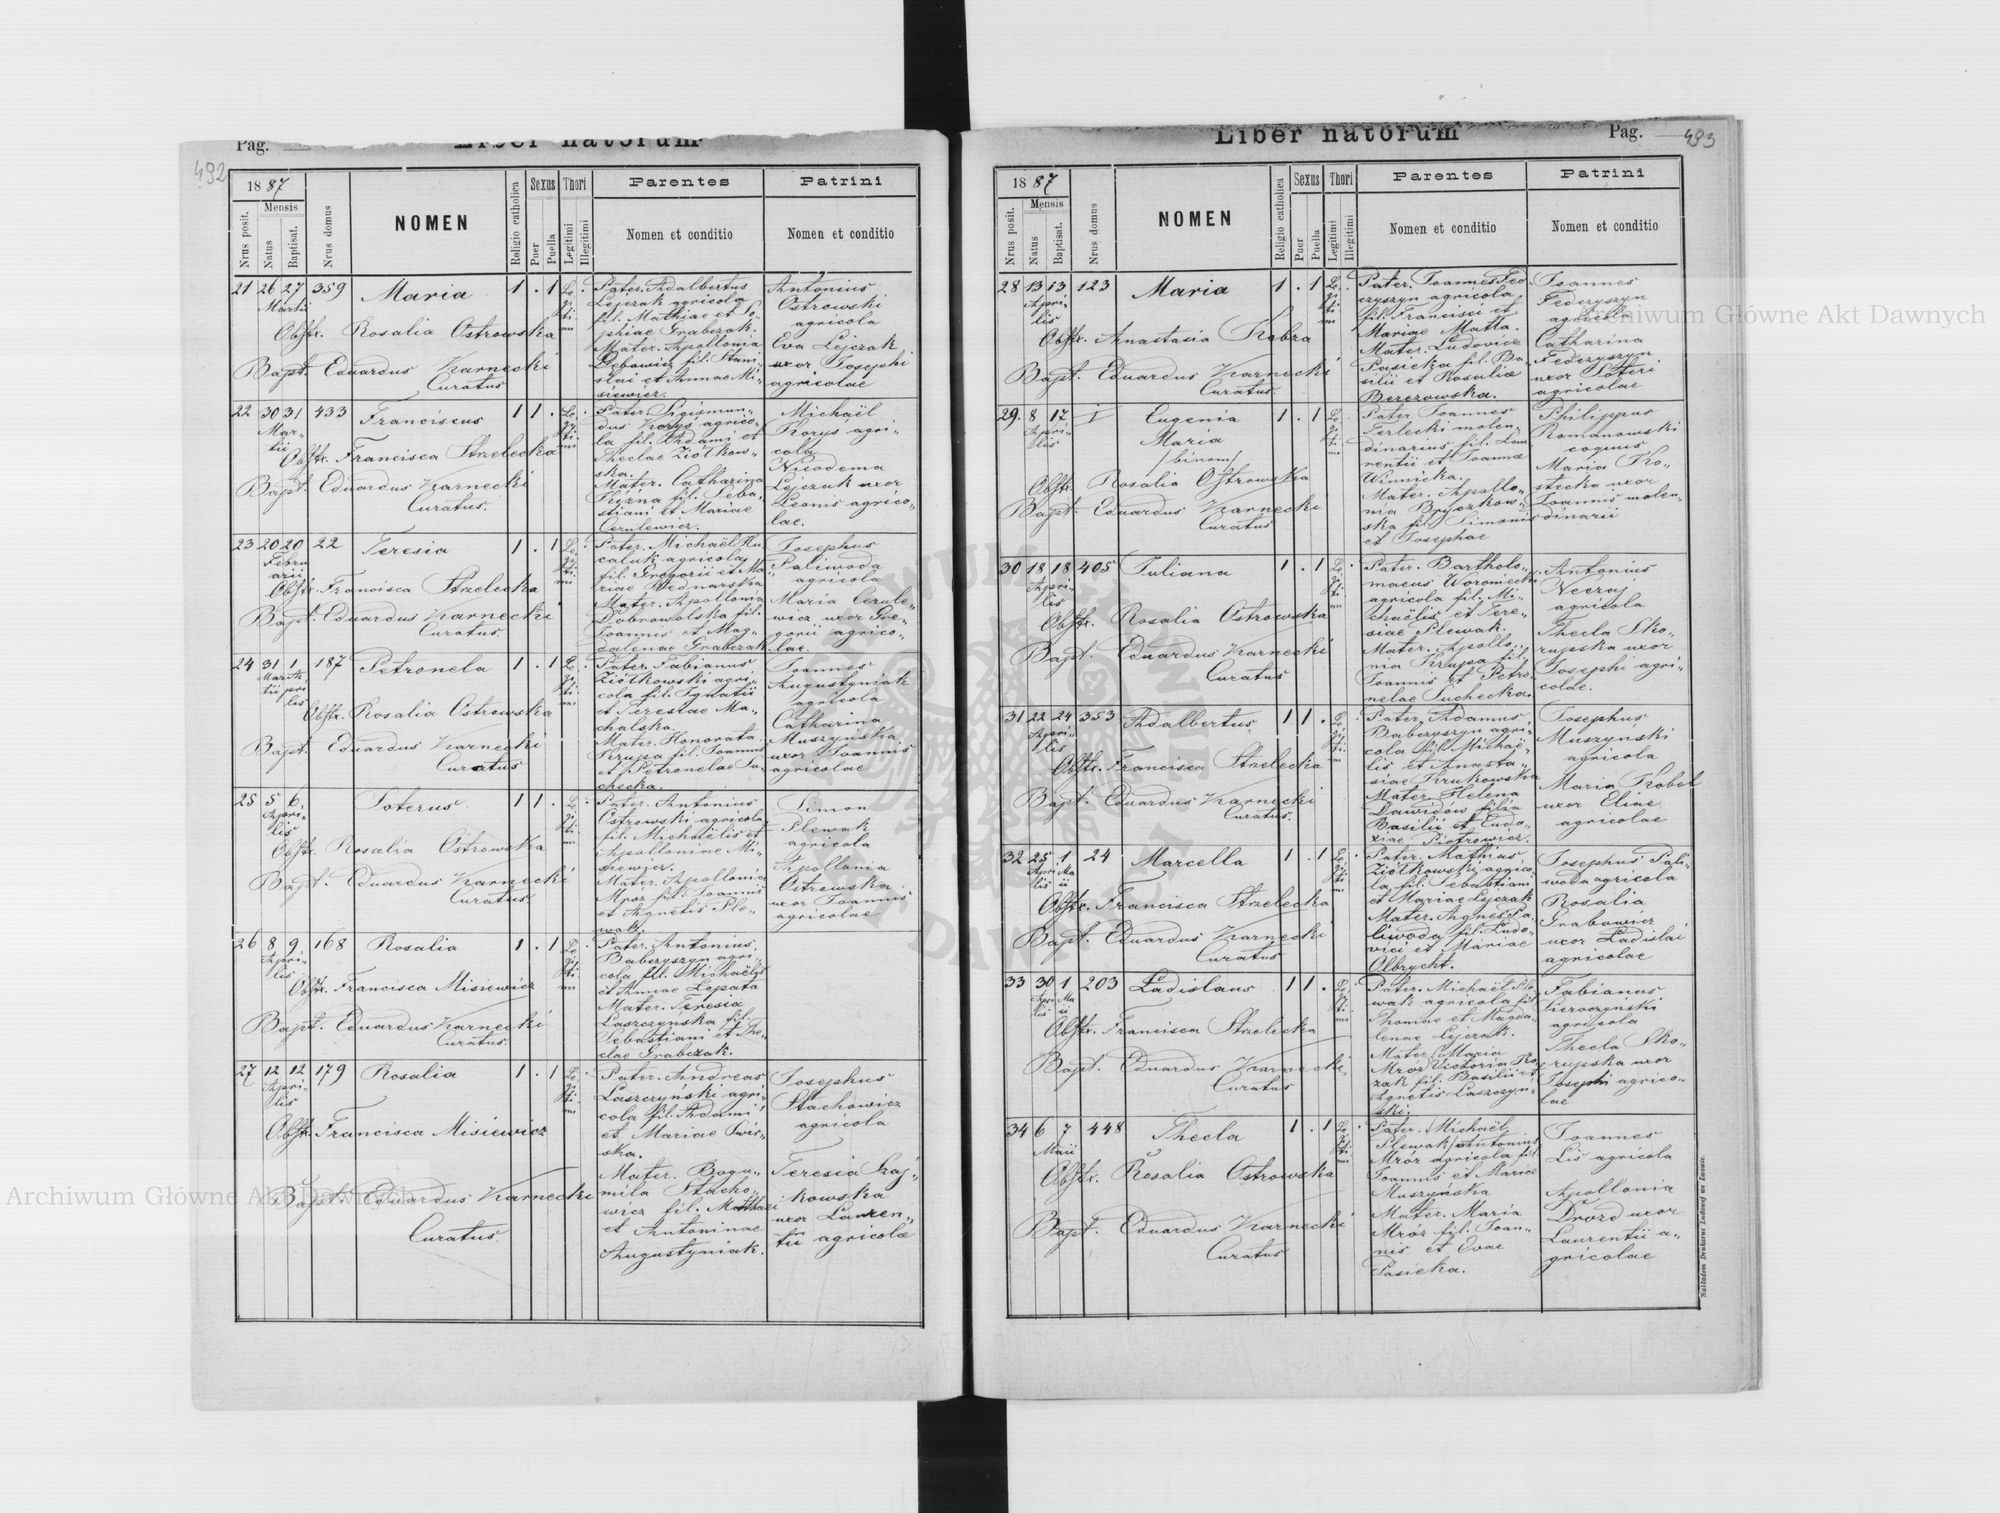 Pag.
Liber natorum
492
1887
Mensis
Nrus posit.
Natus
Baptisat.
Nrus domus
NOMEN
Religio catholica
Sexus
Puer
Puella
Thori
Legitimi
Illegitimi
Parentes
Nomen et conditio
Patrini
Nomen et conditio
21 26 27 359 Maria 1 . 1 Le- .
Martii
gi-
ti-
mi
Obstr. Rosalia Ostrowska
Bapt. Eduardus Karnecki
Curatus
Pater. Adalbertus
Lejczak agricola
fil. Mathiae et So-
phiae Grabczak.
Mater. Apollonia
Dębowicz fil. Stani-
slai et Annae Mi-
siewicz.
Antonius
Ostrowski
agricola
Eva Lejczak
uxor Josephi
agricolae
22 30 31 433 Franciscus 1 1 . Le- .
Mar-
tii
gi-
ti-
mi
Obstr. Francisca Strzelecka
Bapt. Eduardus Karnecki
Curatus.
Pater. Sigismun-
dus Koryś agrico-
la fil. Adami et
Theclae Ziółkow-
ska.
Mater. Catharina
fil. Seba-
stiani et Mariae
Cerulewicz.
Michaël
Koryś agri-
cola
Nicodema
Lejczak uxor
Leonis agrico-
lae.
23 20 20 22 Teresia 1 . 1 Le- .
Febru
arii
gi-
ti-
mi
Obstr. Francisca Strzelecka
Bapt. Eduardus Karnecki
Curatus.
Pater. Michaël Ku-
caluk agricola
fil. Gregorii et Ma-
riae Bednarska
Mater. Apollonia
Dobrowolska fil.
Joannis et Mag-
dalenae Grabczak.
Josephus
Paliwoda
agricola
Maria Cerule-
wicz uxor Gre-
gorii agrico-
lae.
24 31 1 187 Petronela 1 . 1 Le- .
Mar A-
tii pri
lis
gi-
ti-
mi
Obstr. Rosalia Ostrowska
Bapt. Eduardus Karnecki
Curatus
Pater. Fabianus
Ziółkowski agri-
cola fil. Ignatii
et Teresiae Ma-
chalska.
Mater. Honorata
Krupa fil. Joannis
et Petronelae Su-
checka.
Joannes
Augustyniak
agricola
Catharina
Muszyńska
uxor Joannis
agricolae
25 5 6 Soterus 1 1 . Le- .
Apri-
lis
gi-
ti-
mi
Obstr. Rosalia Ostrowska
Bapt. Eduardus Karnecki
Curatus.
Pater. Antonius
Ostrowski agricola
fil. Michaëlis et
Apolloniae Mi-
siewicz.
Mater. Apollonia
Mroz fil. Joannis
et Agnetis Ple-
wak.
Simon
Plewak
agricola
Apollonia
Ostrowska
uxor Joannis
agricolae
26 8 9 168 Rosalia 1 . 1 Le- .
Apri-
lis
gi-
ti-
mi
Obstr. Francisca Misiewicz
Bapt. Eduardus Karnecki
Curatus.
Pater. Antonius
Babczyszyn agri-
cola fil. Michaëlis
et Annae Lopata
Mater. Teresia
Laszczyńska fil.
Sebastiani et The-
clae Grabczak.
27 12 12 179 Rosalia 1 . 1 Le- .
Apri-
lis
gi-
ti-
mi
Obstr. Francisca Misiewicz
Bapt. Eduardus Karnecki
Curatus.
Pater. Andreas
Laszczynski agri-
cola fil. Adami
et Mariae Świr-
ska.
Mater. Bogu-
mila Stacho-
wicz fil. Matthaei
et Antoninae
Augustyniak.
Josephus
Stachowicz
agricola
Teresia Szaj-
kowska
uxor Lauren-
tii agricolae
Liber natorum
Pag.
493
1887
Mensis
Nrus posit.
Natus
Baptisat.
Nrus domus
NOMEN
Religio catholica
Sexus
Puer
Puella
Thori
Legitimi
Illegitimi
Parentes
Nomen et conditio
Patrini
Nomen et conditio
28 13 13 123 Maria 1 . 1 Le- .
Apri-
lis
gi-
ti-
mi
Obstr. Anastasia Kobza
Bapt. Eduardus Karnecki
Curatus.
Pater. Joannes Fed-
czyszyn agricola
fil. Francisci et
Mariae Matla.
Mater. Ludovica
Pasicka fil. Ba-
silii et Rosaliae
Berezowska.
Joannes
Fedczyszyn
agricola
Catharina
Fedczyszyn
uxor Soteri
agricolae
29. 8 17 1 Eugenia 1 . 1 Le- .
Apri-
lis
gi-
ti-
mi
Maria
/binom/
Obstr. Rosalia Ostrowska
Bapt. Eduardus Karnecki
Curatus
Pater. Joannes
Terlecki molen-
dinarius fil. Lau-
rentii et Joannae
Winnicka.
Mater. Apollo-
nia Bryczkow-
ska fil. Simonis
et Josephae
Philippus
Romanowski
coquus
Maria Ko-
stecka uxor
Joannis molen-
dinarii
30 18 18 405 Juliana 1 . 1 Le- .
Apri-
lis
gi-
ti-
mi
Obstr. Rosalia Ostrowska
Bapt. Eduardus Karnecki
Curatus
Pater. Bartholo-
maeus Woroniecki
agricola fil. Mi-
chaëlis et Tere-
siae Plewak.
Mater. Apollo-
nia Krupa fil.
Joannis et Petro-
nelae Suchecka.
Antonius
Neczaj
agricola
Thecla Sko-
rupska uxor
Josephi agri-
colae.
31 22 24 353 Adalbertus 1 1 . Le- .
Apri-
lis
gi-
ti-
mi
Obstr. Francisca Strzelecka
Bapt. Eduardus Karnecki
Curatus.
Pater. Adamus
Babczyszyn agri-
cola fil. Michaë-
lis et Anasta-
siae Krukowska
Mater. Helena
Dawidów filia
Basilii et Eudo-
xiae Piotrowicz.
Josephus
Muszynski
agricola
Maria Kobel
uxor Eliae
agricolae
32 25 1 24 Marcella 1 . 1 Le- .
Apri Ma
lis ii
gi-
ti-
mi
Obstr. Francisca Strzelecka
Bapt. Eduardus Karnecki
Curatus
Pater. Mathias
Ziółkowski agrico-
la fil. Sebastiani
et Mariae Lejczak
Mater. Agnes Pa-
liwoda fil. Ludo-
vici et Mariae
Olbrycht.
Josephus Pali-
woda agricola
Rosalia
Grabowicz
uxor Ladislai
agricolae
33 30 1 203 Ladislaus 1 1 . Le- .
Apri Ma
lis ii
gi-
ti-
mi
Obstr. Francisca Strzelecka
Bapt. Eduardus Karnecki
Curatus
Pater. Michaël Ple-
wak agricola fil.
Thomae et Magda-
lenae Lejczak.
Mater. Maria
Mróz Victoria Ko-
zak fil. Basilii et
Agnetis Laszczyń-
ski.
Fabianus
Sieroczyński
agricola
Thecla Sko-
rupska uxor
Josephi agrico-
lae
34 6 7 448 Thecla 1 . 1 Le- .
Maii
gi-
ti-
mi
Obstr. Rosalia Ostrowska
Bapt. Eduardus Karnecki
Curatus
Pater. Michaël
Plewak/Antonius
Mróz agricola fil.
Joannis et Mariae
Muszyńska
Mater. Maria
Mróz fil. Joan-
nis et Evae
Pasicka.
Joannes
Lis agricola
Apollonia
Drozd uxor
Laurentii a-
gricolae
Nakładem Drukarni Ludowej we Lwowie.
Archiwum Główne Akt Dawnych
Archiwum Główne Akt Dawnych